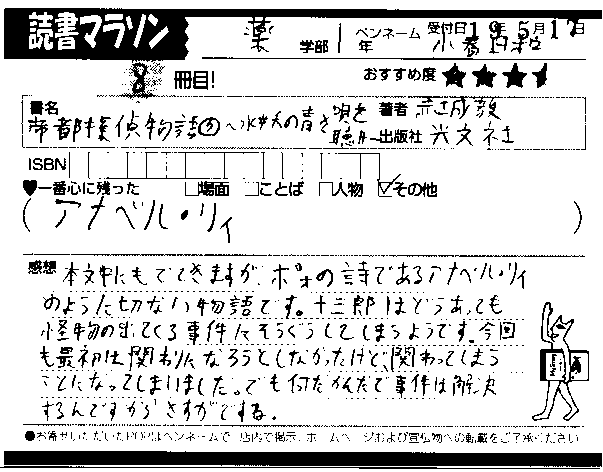 読書マラソン 薬 学部 1 年 ペンネーム 小春日和 受付日 19年 5月 17日
8 冊目! おすすめ度 ★★★
書名 帝都探偵物語 著者 赤城毅
の青き唄を聴く 出版社 光文社
ISBN
♥一番心に残った □場面 □ことば □人物 ☑その他
(アナベル・リィ)
感想 本文中にもでてきますが、ポオの詩であるアナベル・リィ
のような切ない物語です。十三郎はどうあっても
怪物の出てくる事件にそうぐうしてしまうようです。今回
も最初は関わりになろうとしなかったけど、関わってしまう
ことになってしまいました。でも何だかんだで事件は解決
するんですからさすがですね。
●お寄せいただいたPOPはペンネームで、店内で掲示、ホームページおよび宣伝物への転載をご了承ください